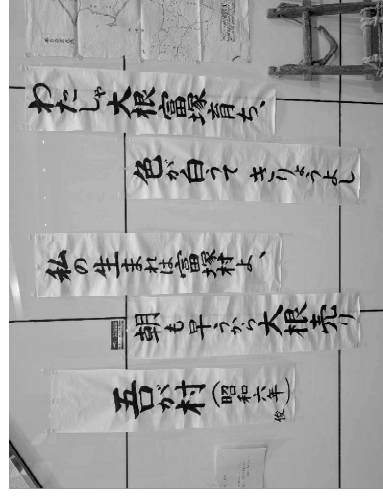 わたしゃ大根富塚育ち、
色が白うて きりょうよし
私の生まれは富塚村よ、
朝も早うから大根売り
吾が村（昭和六年）
俊